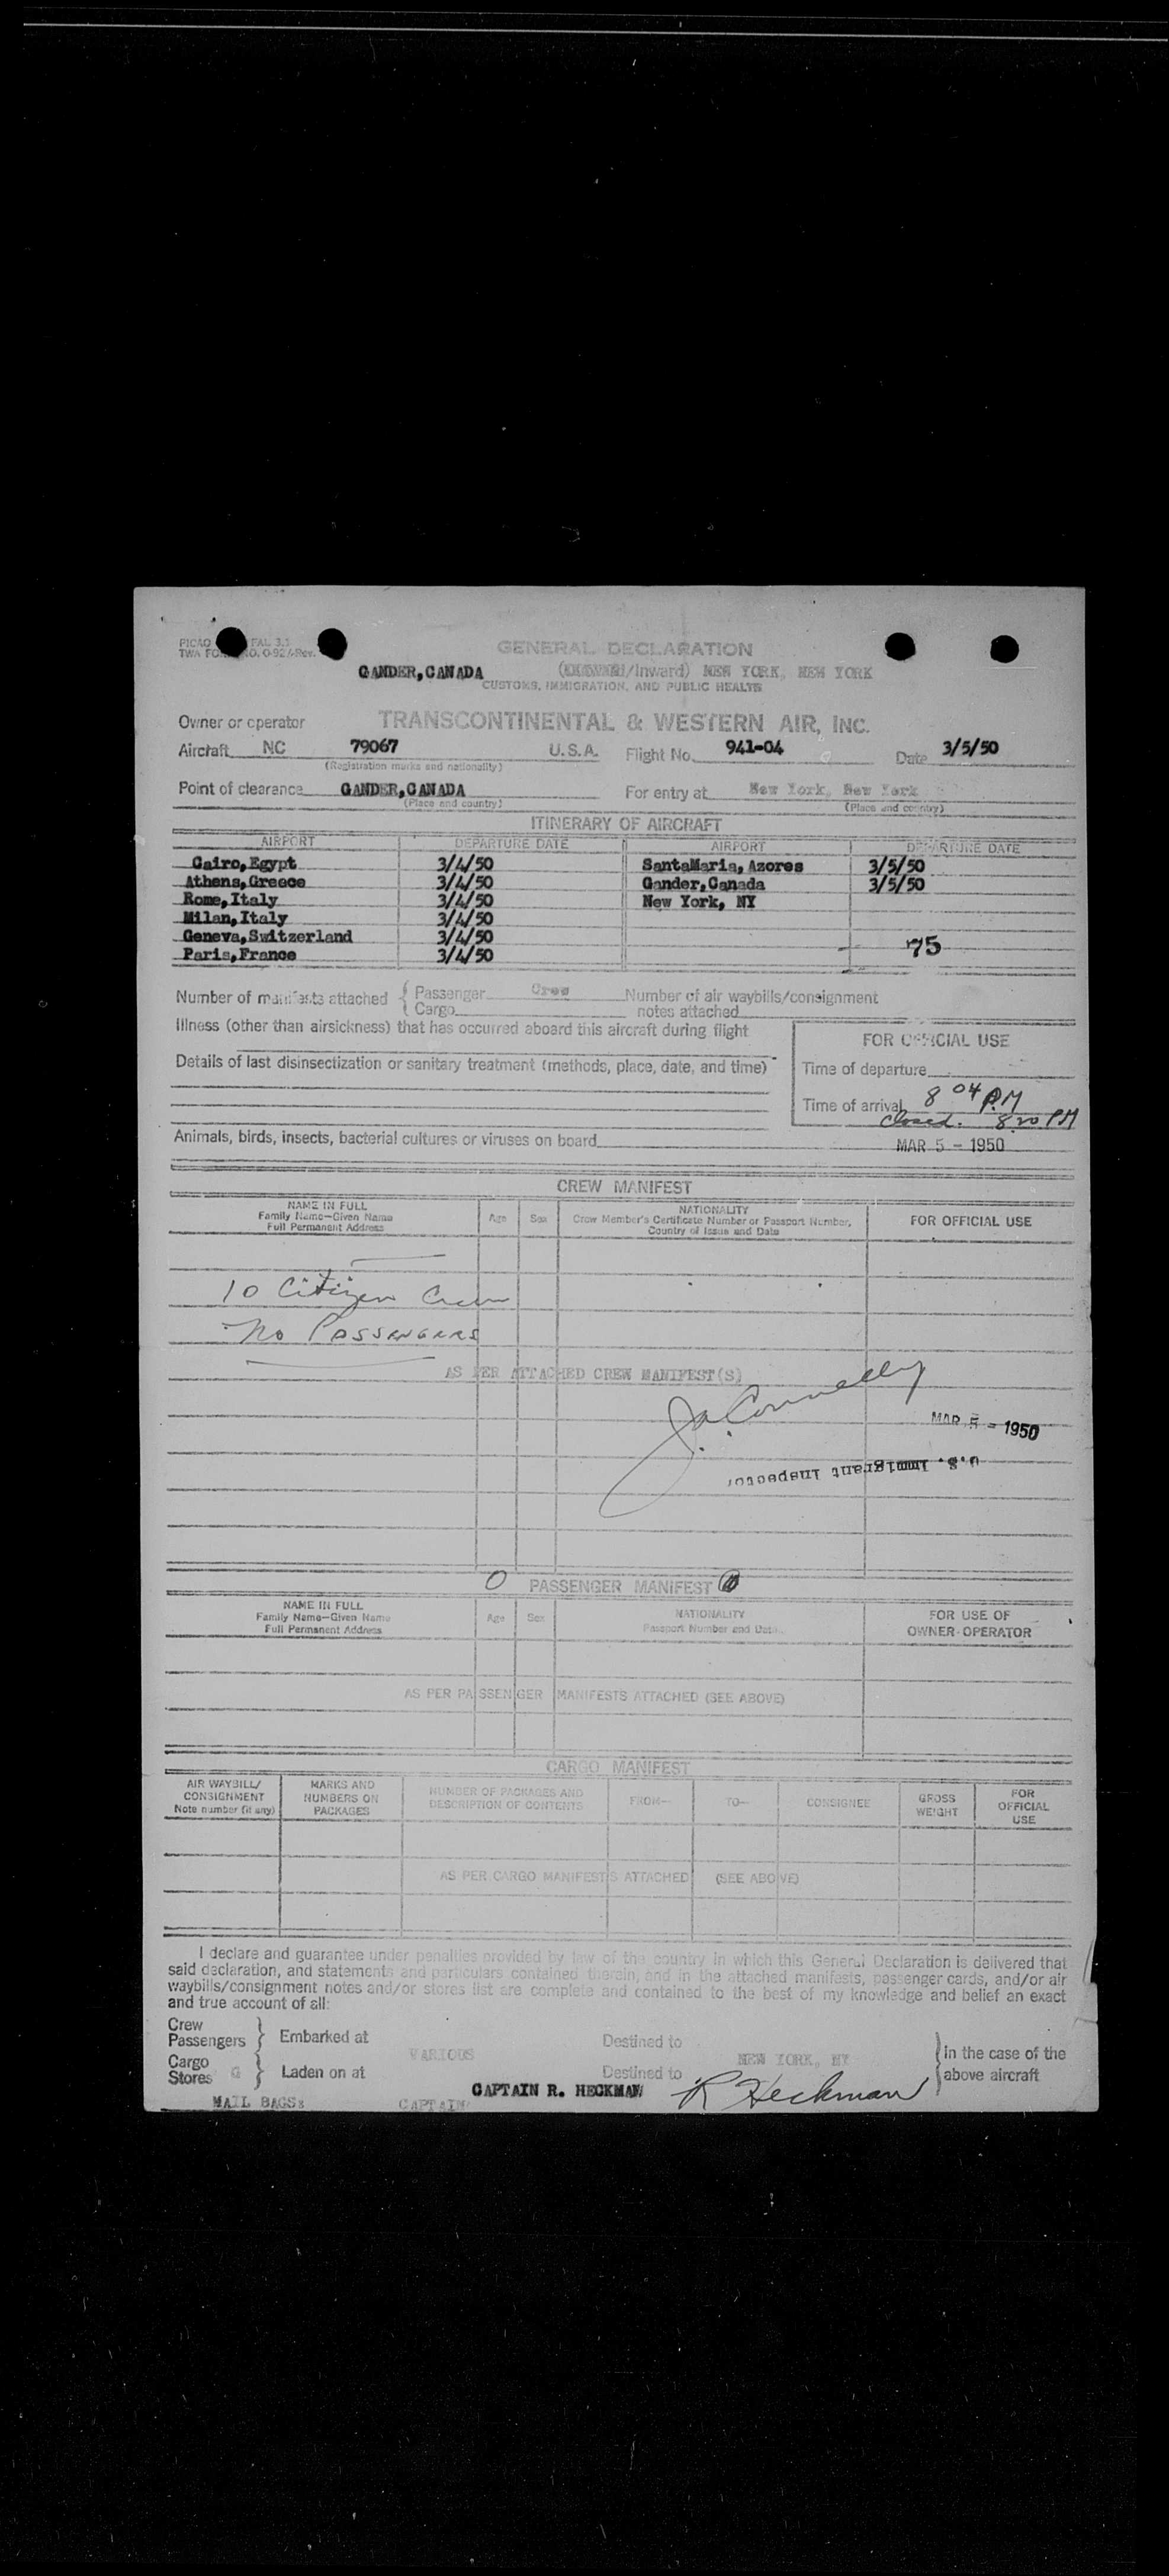 PICAO FAL 3.1 GENERAL DECLARATION
TWA NO. O-92 Rev.
GANDER, CANADA /Inward) NEW YORK, NEW YORK
CUSTOMS, IMMIGRATION, AND PUBLIC HEALTH
Owner or operator TRANSCONTINENTAL & WESTERN AIR, INC.
Aircraft NC 79067 U.S.A. Flight No. 941-04 Date 3/5/50
(Registration marks and nationality)
Point of clearance GANDER, CANADA For entry at New York, New York
(Place and country) (Place and country)
ITINERARY OF AIRCRAFT
AIRPORT DEPARTURE DATE AIRPORT DEPARTURE DATE
Cairo, Egypt 3/4/50 SantaMaria, Azores 3/5/50
Athens, Greece 3/4/50 Gander, Canada 3/5/50
Rome, Italy 3/4/50 New York, NY
Milan, Italy 3/4/50
Geneva, Switzerland 3/4/50 75
Paris, France 3/4/50
Number of manifests attached { Passenger Crew Number of air waybills/consignment
Cargo notes attached
Illness (other than airsickness) that has occurred aboard this aircraft during flight
FOR OFFICIAL USE
Details of last disinsectization or sanitary treatment (methods, place, date, and time)
Time of departure
Time of arrival 8 04 PM
Closed. 8 20 PM
Animals, birds, insects, bacterial cultures or viruses on board MAR 5 - 1950
CREW MANIFEST
NAME IN FULL
Family Name—Given Name
Full Permanent Address
Age Sex
NATIONALITY
Crew Member's Certificate Number or Passport Number,
Country of Issue and Date
FOR OFFICIAL USE
10 Citizen Crew
No PASSENGERS
AS PER ATTACHED CREW MANIFEST(S)
J.A. Connelly
MAR 5 - 1950
U.S. Immigrant Inspector
0 PASSENGER MANIFEST
NAME IN FULL
Family Name—Given Name
Full Permanent Address
Age Sex
NATIONALITY
Passport Number and Date
FOR USE OF
OWNER-OPERATOR
AS PER PASSENGER MANIFESTS ATTACHED (SEE ABOVE)
CARGO MANIFEST
AIR WAYBILL/
CONSIGNMENT
Note number (if any)
MARKS AND
NUMBERS ON
PACKAGES
NUMBER OF PACKAGES AND
DESCRIPTION OF CONTENTS
FROM—
TO—
CONSIGNEE
GROSS
WEIGHT
FOR
OFFICIAL
USE
AS PER CARGO MANIFESTS ATTACHED (SEE ABOVE)
I declare and guarantee under penalties provided by law of the country in which this General Declaration is delivered that
said declaration, and statements and particulars contained therein, and in the attached manifests, passenger cards, and/or air
waybills/consignment notes and/or stores list are complete and contained to the best of my knowledge and belief an exact
and true account of all:
Crew
Passengers } Embarked at VARIOUS Destined to NEW YORK, NY } in the case of the
Cargo
Stores G } Laden on at Destined to above aircraft
CAPTAIN R. HECKMAN R Heckman
MAIL BAGS: CAPTAIN